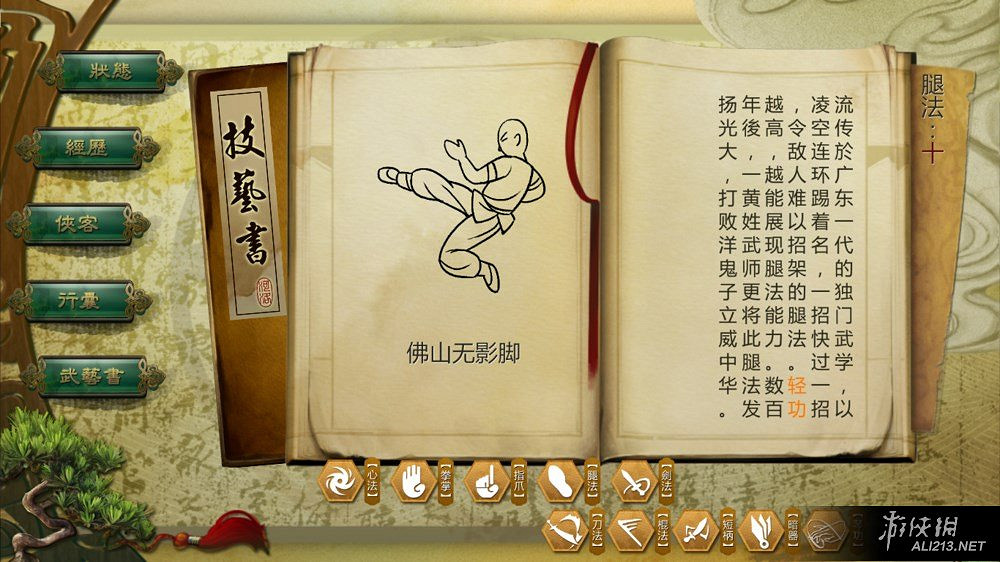 狀態
經歷
俠客
行囊
武藝書
技藝書
佛山无影脚
腿法：十
流传於广东一代的独门武学，以
凌空连环踢着名，一招快过一招
，令敌人难以招架的腿法。轻功
越高，越能展现腿法能力。数百
年後，一黄姓武师更将此腿法发
扬光大，打败洋鬼子立威中华。
【心法】
【拳掌】
【指爪】
【腿法】
【剑法】
【刀法】
【棍法】
【短柄】
【暗器】
游侠網
ALI213.NET